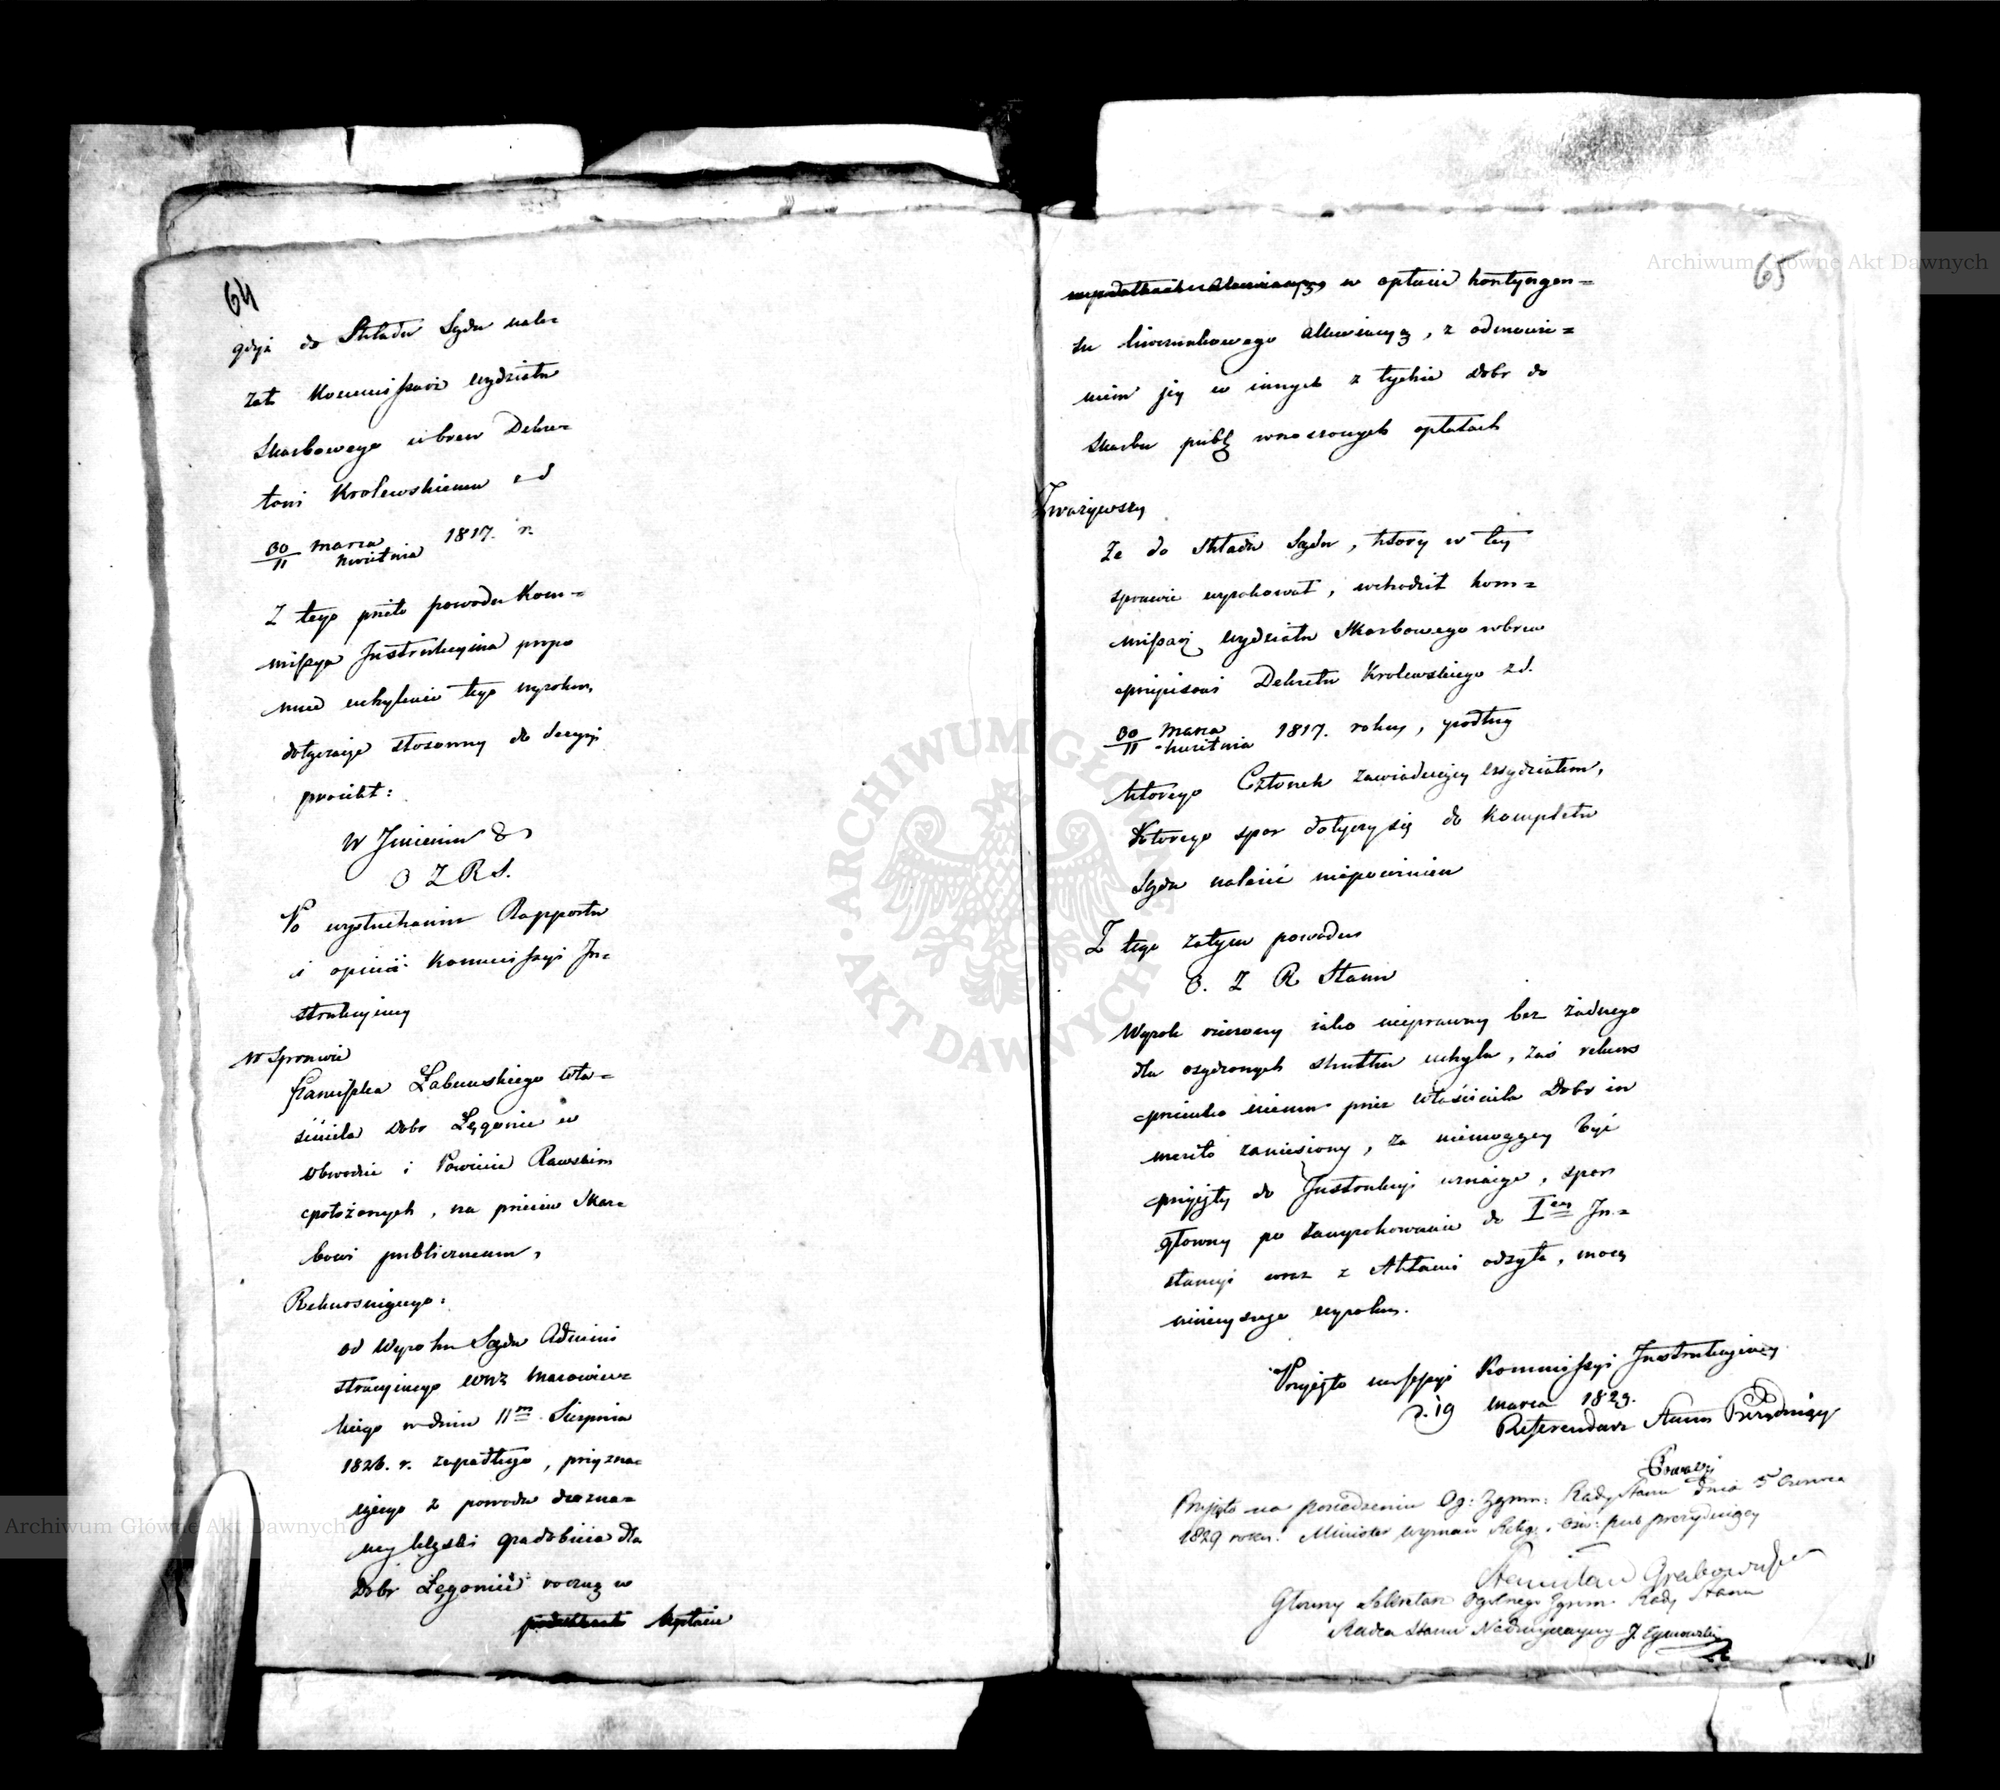 64
gdyż do Składu Sądu nale=
żał Kommissarz Wydziału
Skarbowego wbrew Dekre=
towi Krolewskiemu z d
30/11 marca/kwietnia 1817. r.
Z tego przeto powodu Kom=
missya Instrukcyina propo
nuie uchylenie tego wyroku,
dołączaiąc stosowny do decyzyi
proiekt:
W Imieniu &
O Z R S.
Po wysłuchaniu Rapportu
i opinii Kommissyi In=
strukcyiney
W Sprawie
Franciszka Łabęckiego Wła=
ściciela Dobr Łęgonic w
Obwodzie i Powiecie Rawskim
położonych, na przeciw Skar=
bowi publicznemu,
Rekuruiącego:
od Wyroku Sądu Admini
stracyinego Wdztwa Mazowiec
kiego w dniu 11m Sierpnia
1826. r. zapadłego, przyzna=
iącego z powodu dozna=
ney klęski gradobicia dla
Dobr Łęgonic roczną w
opłacie
65
w opłacie kontyngen=
su liwerunkowego allewiacyą, z odmowie=
niem jey w innych z tychże dobr do
Skarbu publ wnoszonych opłatach
Zważywszy
Że do Składu Sądu, ktory w tey
sprawie wyrokował, wchodził Kom=
missarz Wydziału Skarbowego wbrew
przepisowi Dekretu Krolewskiego z d.
30/11 Marca/kwietnia 1817. roku, podług
ktorego Członek zawiaduiący Wydziałem,
Ktorego spor dotyczy się do Kompletu
Sądu należeć niepowinien
Z tego zatym powodu
O. Z R Stanu
Wyrok rzeczony iako nieprawny bez żadnego
dla osądzonych skutku uchyla, zaś rekurs
przeciwko niemu przez właściciela Dobr in
merito zaniesiony, za niemogący być
przyięty do Instrukcyi uznaiąc, spor
głowny po zawyrokowanie do Iey In=
stancyi wraz z Aktami odsyła, mocą
ninieyszego wyroku.
Przyięto na sessyi Kommissyi Instrukcyiney
d. 19 marca 1829.
Referendarz Stanu Prezyduiący
Przyjęto na posiedzeniu Og: Zgrom: Rady Stanu dnia 5 Czerwca
1829 roku. Minister Wyznań Relig. i Ośw: pub prezyduiący
Stanisław Grabowski
Głowny Sekretarz Ogolnego Zgrom. Rady Stanu
Radca Stanu Nadzwyczayny J. Tymowski
Archiwum Główne Akt Dawnych
Archiwum Główne Akt Dawnych
ARCHIWUM GŁÓWNE AKT DAWNYCH